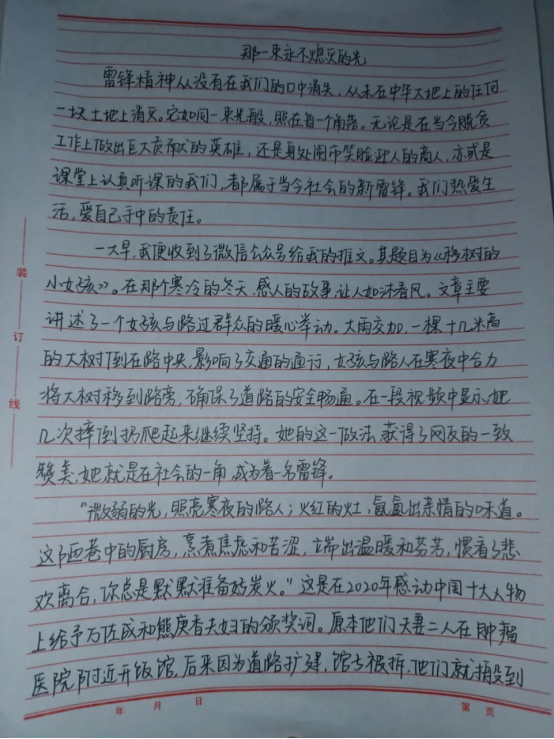 那一束永不熄灭的光
雷锋精神从没有在我们的口中消失，从未在中华大地上的任何
一块土地上消灭。它如同一束光般，照在每一个角落。无论是在当今脱贫
工作上做出巨大贡献的英雄，还是身处闹市笑脸迎人的商人，亦或是
课堂上认真听课的我们，都属于当今社会的新雷锋。我们热爱生
活，爱自己手中的责任。
一大早，我便收到了微信公众号给我的推文。其题目为《移树的
小女孩》。在那个寒冷的冬天，感人的故事，让人如沐春风。文章主要
讲述了一个女孩与路过群众的暖心举动。大雨交加，一棵十几米高
的大树倒在路中央，影响了交通的通行，女孩与路人在寒夜中合力
将大树移到路旁，确保了道路的安全畅通。在一段视频中显示，她
几次摔倒扔爬起来继续坚持。她的这一做法，获得了网友的一致
赞美，她就是在社会的一角，成为着一名雷锋。
“微弱的光，照亮寒夜的路人；火红的灶，氤氲出亲情的味道。
这陋巷中的厨房，烹煮焦虑和苦涩，端出温暖和芬芳，惯看了悲
欢离合，你总是默默准备好炭火。”这是在2020年感动中国十大人物
上给予万佐成和熊庚香夫妇的颁奖词。原本他们夫妻二人在肿瘤
医院附近开饭馆，后来因为道路扩建，馆子被拆，他们就搬到
装
订
线
年 月 日
第 页